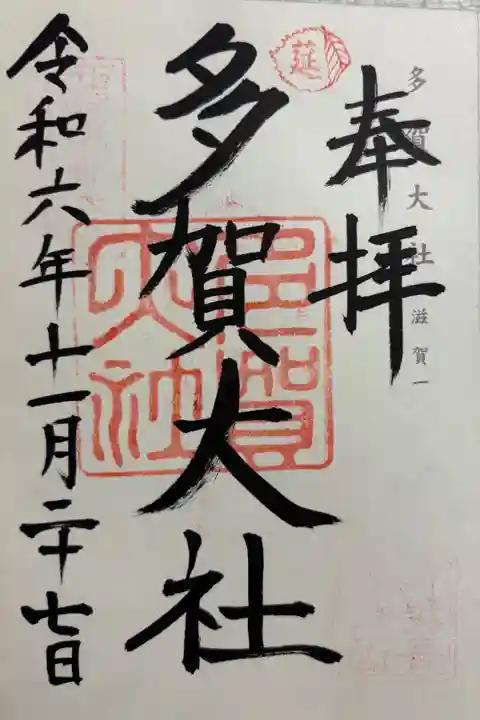 多賀大社 滋賀一
奉拝
莚
多賀大社
多賀大社
令和六年十一月二十七日